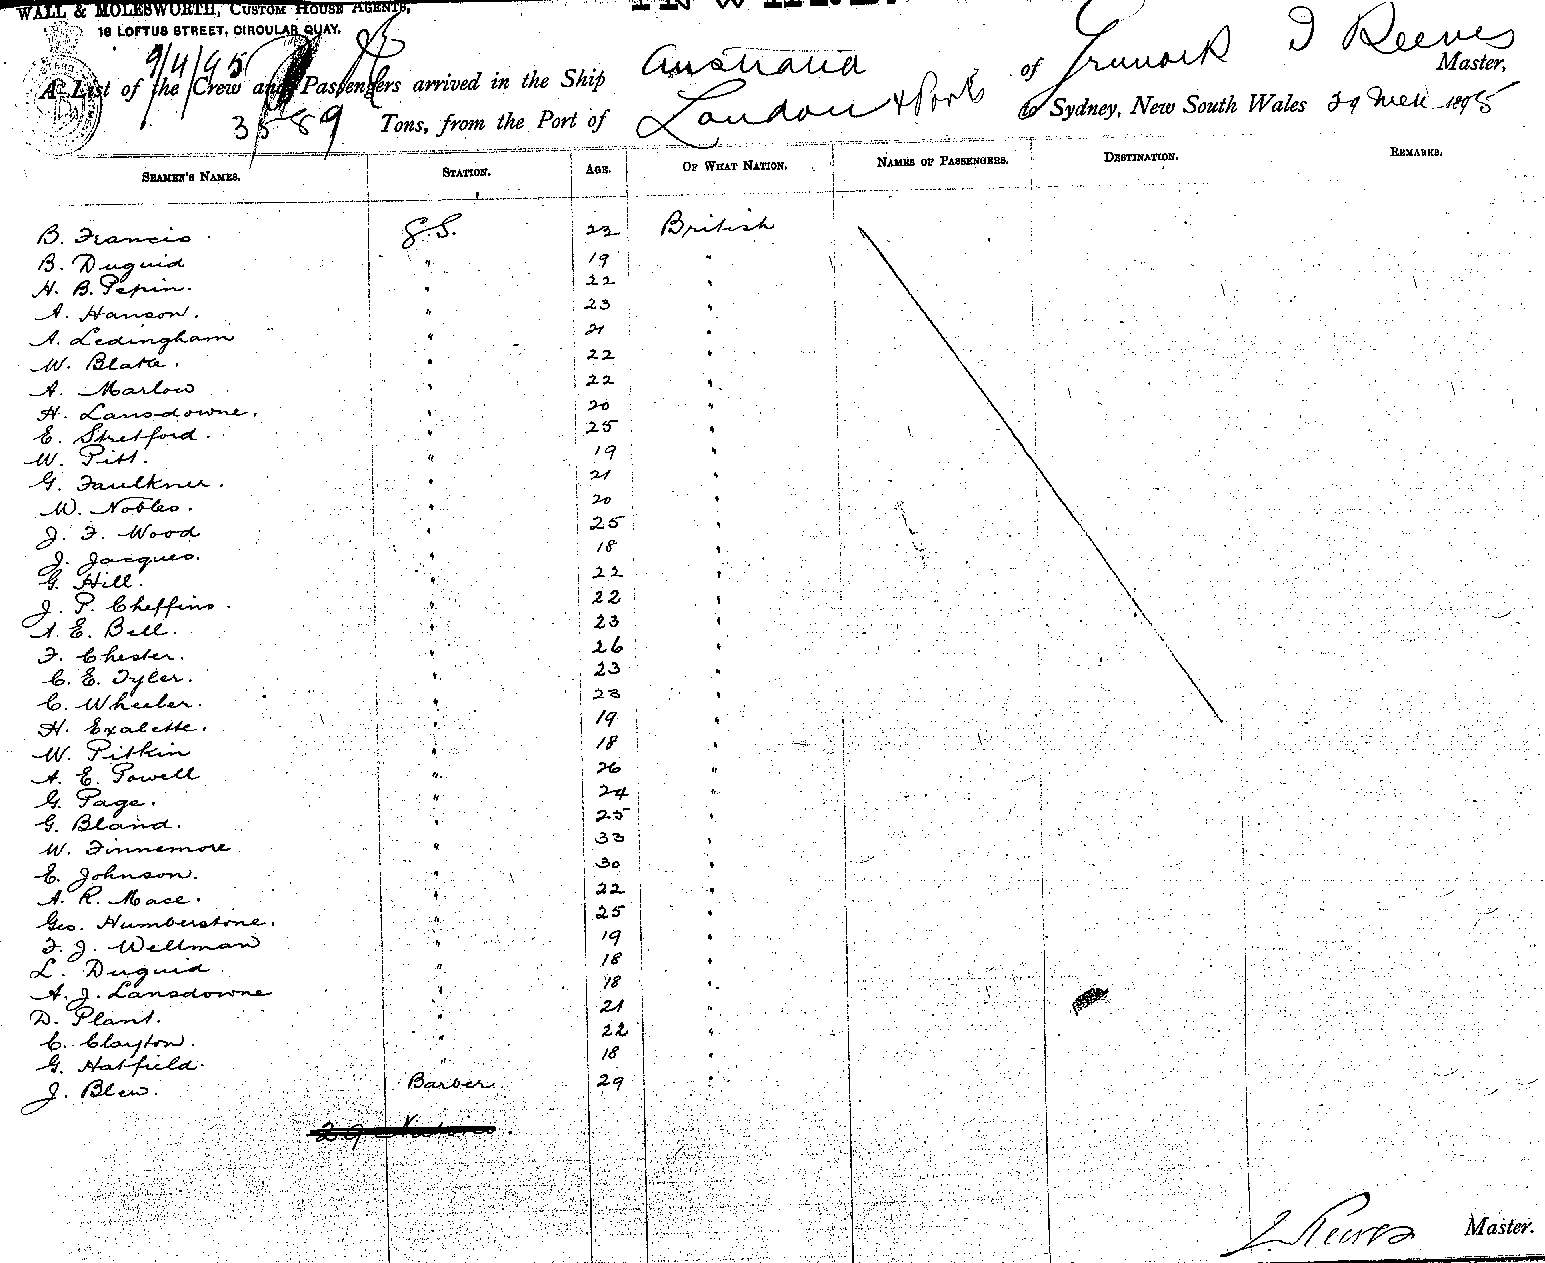 WALL & MOLESWORTH, CUSTOM HOUSE AGENTS,
16 LOFTUS STREET, CIRCULAR QUAY.
9/4/95
A List of the Crew and Passengers arrived in the Ship Australia of Greenock J Reeves Master,
3589 Tons, from the Port of London & Ports to Sydney, New South Wales 29 1895
SEAMEN'S NAMES. STATION. AGE. OF WHAT NATION. NAMES OF PASSENGERS. DESTINATION. REMARKS.
B. Francis. G.S. 22 British
B. Duguid " 19 "
H. B. Pepin. " 22 "
A. Hanson. " 23 "
A. Ledingham " 21 "
W. Blake. " 22 "
A. Marlow " 22 "
H. Lansdowne. " 20 "
E. Stretford. " 25 "
W. Pitt. " 19 "
G. Faulkner. " 21 "
W. Nobles. " 20 "
J. F. Wood " 25 "
J. Jacques. " 18 "
G. Hill. " 22 "
J. P. Cheffins. " 22 "
A. E. Bell. " 23 "
F. Chester. " 26 "
C. E. Tyler. " 23 "
C. Wheeler. " 23 "
H. Exalette. " 19 "
W. Pitkin " 18 "
A. E. Powell " 26 "
G. Page. " 24 "
G. Bland. " 25 "
W. Finnemore " 33 "
E. Johnson. " 30 "
A. R. Mace. " 22 "
Geo. Humberstone. " 25 "
F. J. Wellman " 19 "
L. Duguid " 18 "
A. J. Lansdowne " 18 "
D. Plant. " 21 "
C. Clayton. " 22 "
G. Hatfield. " 18 "
J. Blew. Barber. 29 "
J. Reeves Master.